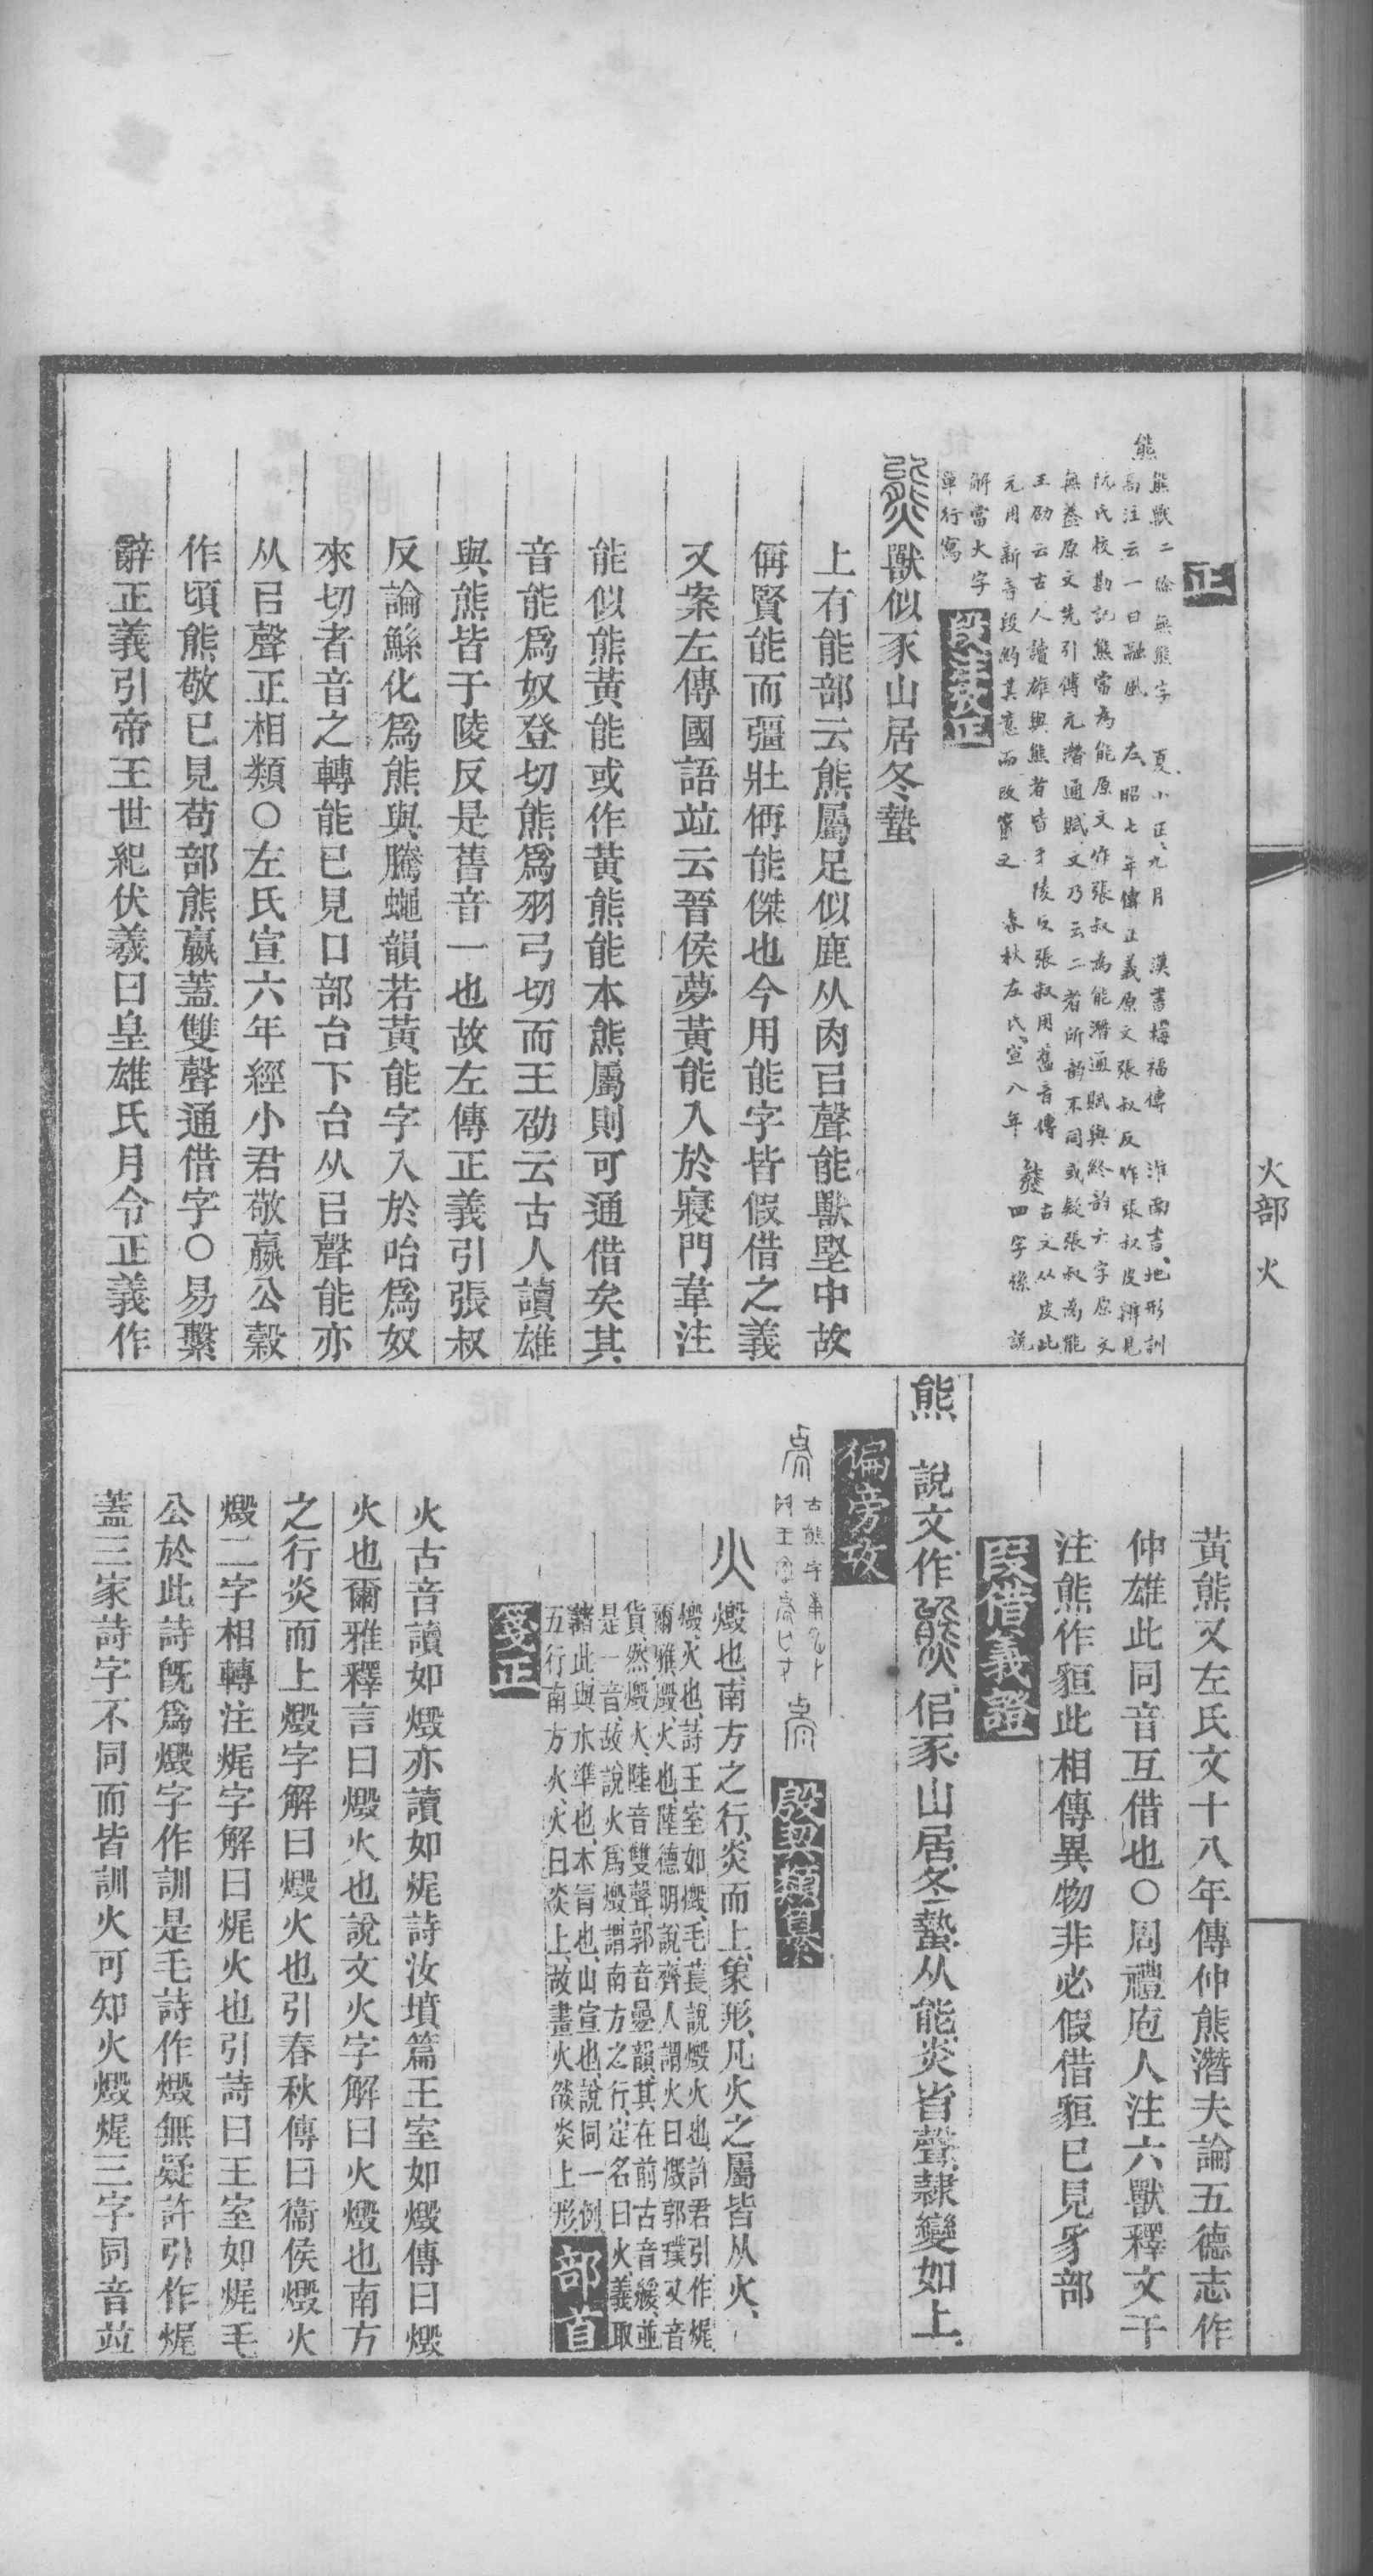 正
熊 熊獸二徐無熊字 夏小正九月 漢書梅福傳 淮南書地形訓
高注云一曰融風 左昭七年傳正義原文張叔反作張叔皮辨見
阮氏校勘記熊當為能原文作張叔為能潛通賦與終韵六字原文
無蓋原文先引傅元潛通賦文乃云二者所韵不同或疑張叔為能
王劭云古人讀雄與熊者皆于陵反張叔用舊音傅 古文从皮此
元用新音段約其意而改竄之 春秋左氏宣八年 四字係說
解當大字
單行寫
段注攷正
獸似豕山居冬蟄
上有能部云熊屬足似鹿从肉㠯聲能獸堅中故
偁賢能而彊壯偁能傑也今用能字皆假借之義
又案左傳國語竝云晉侯夢黃能入於寢門韋注
能似熊黃能或作黃熊能本熊屬則可通借矣其
音能為奴登切熊為羽弓切而王劭云古人讀雄
與熊皆于陵反是舊音一也故左傳正義引張叔
反論鯀化為熊與騰蠅韻若黃能字入於咍為奴
來切者音之轉能已見口部台下台从㠯聲能亦
从㠯聲正相類○左氏宣六年經小君敬嬴公穀
作頃熊敬已見茍部熊嬴蓋雙聲通借字○易繫
辭正義引帝王世紀伏羲曰皇雄氏月令正義作
火部 火
黃熊又左氏文十八年傳仲熊潛夫論五德志作
仲雄此同音互借也○周禮庖人注六獸釋文干
注熊作貆此相傳異物非必假借貆已見豸部
叚借義證
熊 說文作 佀豕山居冬蟄从能炎省聲隸變如上
偏旁攷
古熊字
殷契類纂
火 燬也南方之行炎而上象形凡火之屬皆从火
燬火也詩王室如燬毛萇說燬火也許君引作㷄
爾雅燬火也陸德明說齊人謂火曰燬郭璞又音
貨然燬火陸音雙聲郭音曡韻其在前古音緩並
是一音故說火為燬謂南方之行定名曰火義取
諸此與水準也木冒也山宣也說同一例
五行南方火火曰炎上故畫火燄炎上形
部首
箋正
火古音讀如燬亦讀如㷄詩汝墳篇王室如燬傳曰燬
火也爾雅釋言曰燬火也說文火字解曰火燬也南方
之行炎而上燬字解曰燬火也引春秋傳曰衞侯燬火
燬二字相轉注㷄字解曰㷄火也引詩曰王室如㷄毛
公於此詩旣為燬字作訓是毛詩作燬無疑許引作㷄
蓋三家詩字不同而皆訓火可知火燬㷄三字同音竝